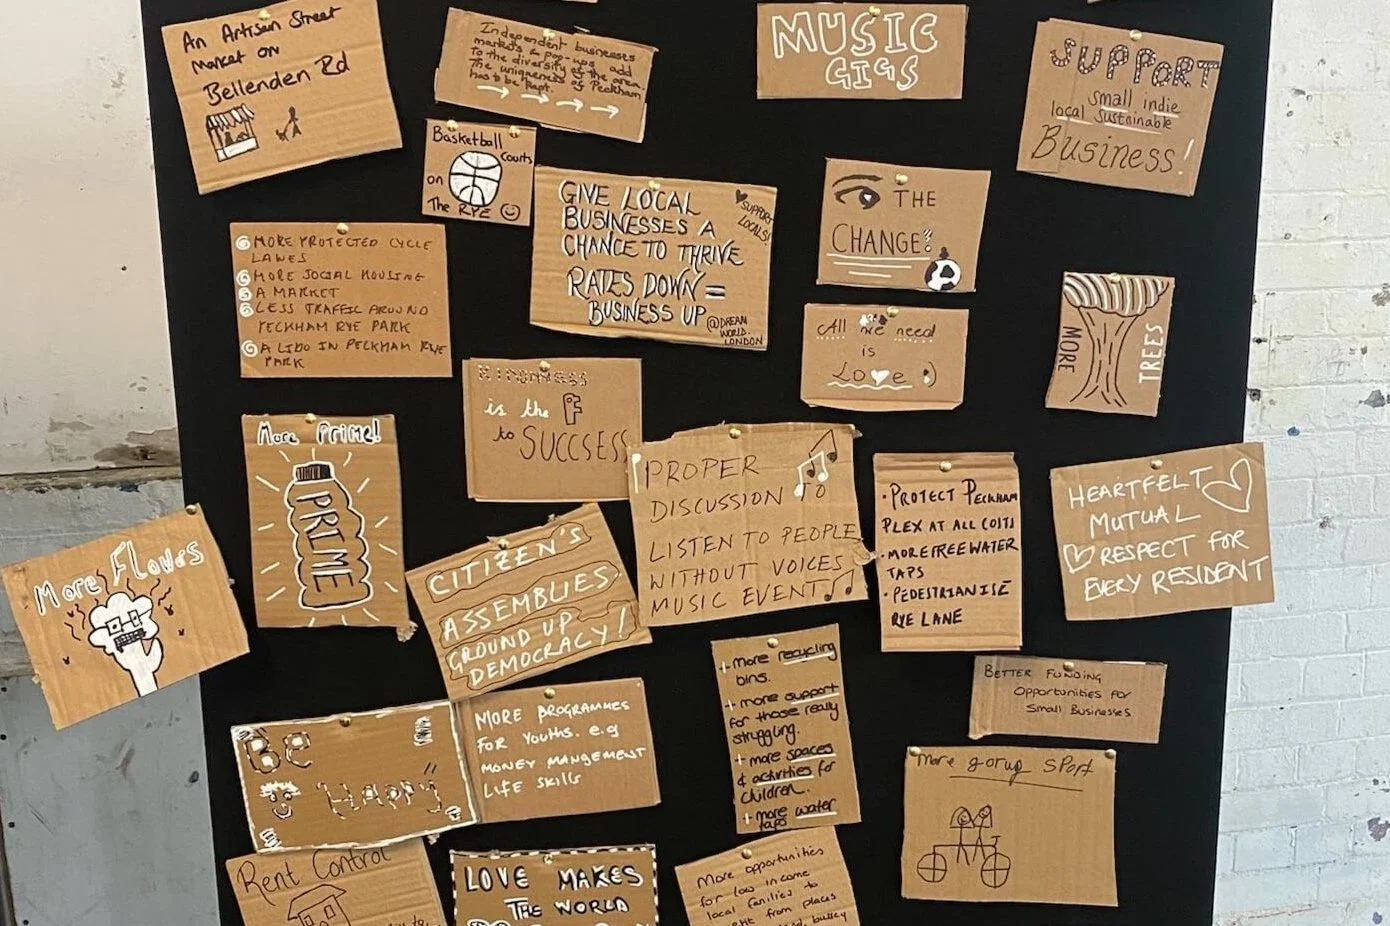 An Artisan Street
market on
Bellenden Rd
Independent businesses
markets & pop-ups add
to the diversity of the area.
The uniqueness of Peckham
has to be kept.
MUSIC
GIGS
SUPPORT
small indie
local sustainable
Business!
Basketball
Courts
on
The RYE
GIVE LOCAL
BUSINESSES A
CHANCE TO THRIVE
RATES DOWN =
BUSINESS UP
SUPPORT
LOCALS!
@DREAM
WORLD.
LONDON
THE
CHANGE!
MORE PROTECTED CYCLE
LANES
MORE SOCIAL HOUSING
A MARKET
LESS TRAFFIC AROUND
PECKHAM RYE PARK
A LIDO IN PECKHAM RYE
PARK
All we need
is
Love :)
MORE
TREES
KINDNESS
is the
to SUCCSESS
More Prime!
PRIME
PROPER
DISCUSSION TO
LISTEN TO PEOPLE
WITHOUT VOICES
MUSIC EVENT
• PROTECT PECKHAM
PLEX AT ALL COSTS
• MORE FREE WATER
TAPS
• PEDESTRIANISE
RYE LANE
HEARTFELT
MUTUAL
RESPECT FOR
EVERY RESIDENT
More Flowers
CITIZEN'S
ASSEMBLIES
GROUND UP
DEMOCRACY!
+ more recycling
bins.
+ more support
for those really
struggling.
+ more spaces
& activities for
children.
+ more water
taps
BETTER FUNDING
Opportunities for
Small Businesses
BE
HAPPY
MORE PROGRAMMES
FOR YOUTHS. e.g
MONEY MANGEMENT
LIFE SKILLS
more gorup sport
Rent Control
LOVE MAKES
THE WORLD
More opportunities
for low income
local families to
from places